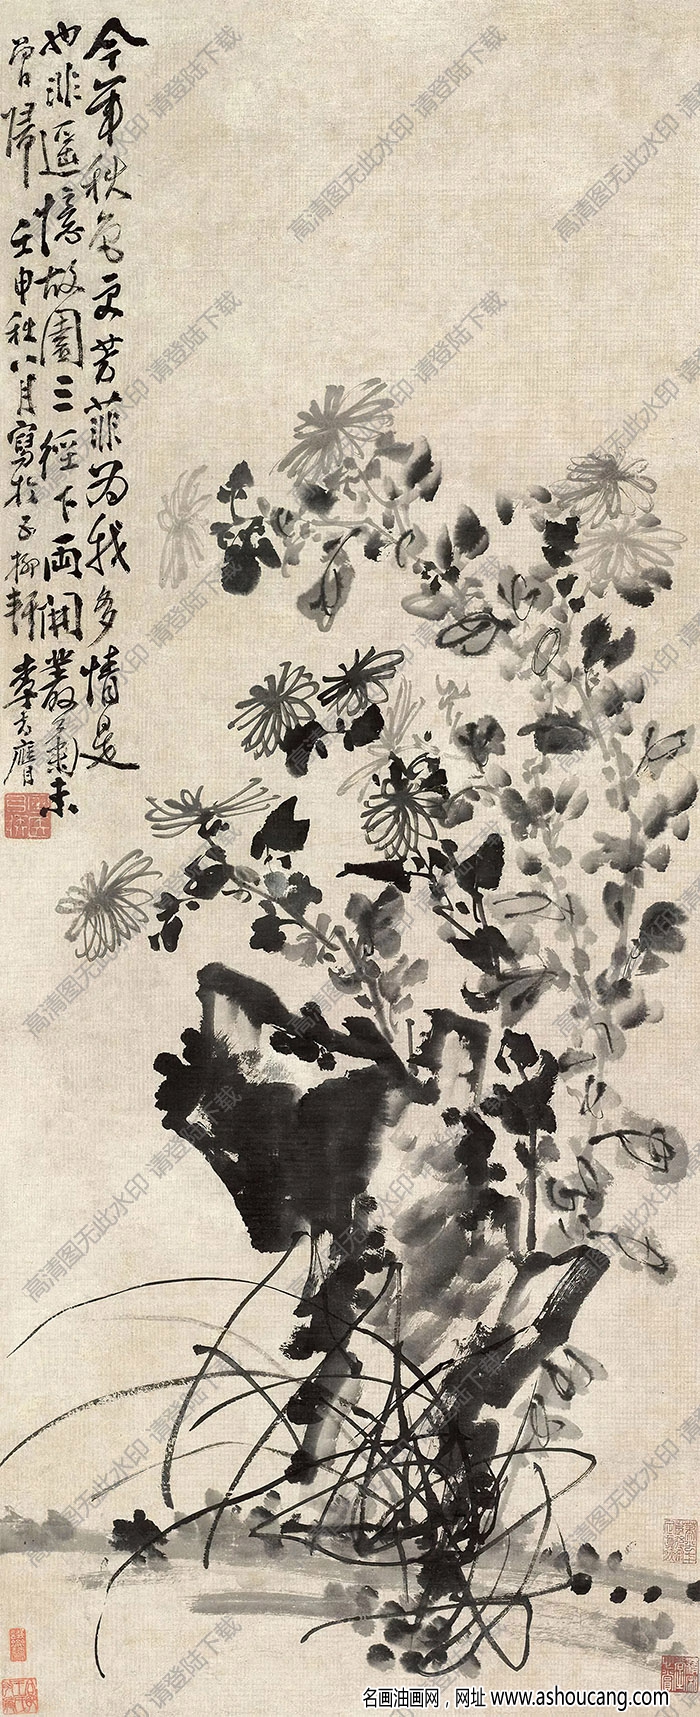 今年秋色更芳菲為我多情是
也非遥憶故園三徑下兩開叢菊未
曾歸 壬申秋八月寫於子栁軒 李方膺
高清图无此水印 请登陆下载
名画油画网，网址 www.ashoucang.com